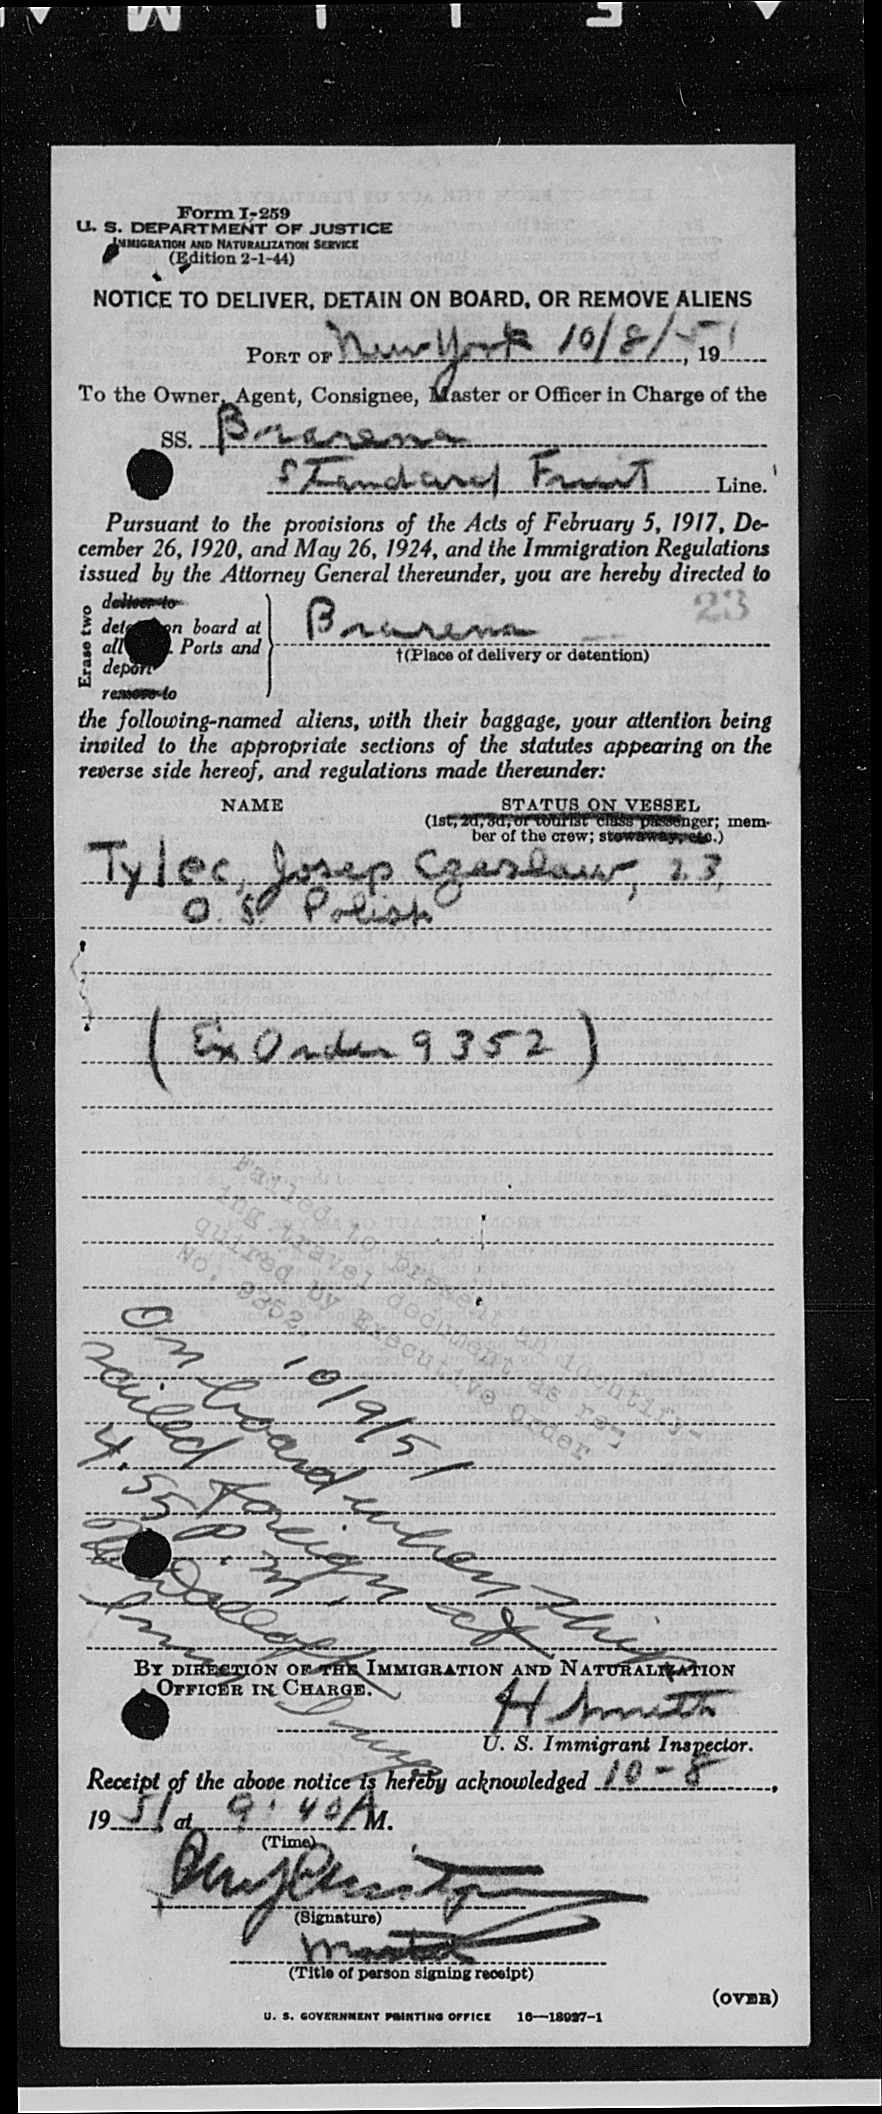 Form I-259
U. S. DEPARTMENT OF JUSTICE
IMMIGRATION AND NATURALIZATION SERVICE
(Edition 2-1-44)
NOTICE TO DELIVER, DETAIN ON BOARD, OR REMOVE ALIENS
PORT OF New York 10/8/51, 19
To the Owner, Agent, Consignee, Master or Officer in Charge of the
SS. Brarena
Standard Fruit Line.
Pursuant to the provisions of the Acts of February 5, 1917, De-
cember 26, 1920, and May 26, 1924, and the Immigration Regulations
issued by the Attorney General thereunder, you are hereby directed to
Erase two
deliver to
detain on board at
all . Ports and
deport
remove to
Brarena
23
†(Place of delivery or detention)
the following-named aliens, with their baggage, your attention being
invited to the appropriate sections of the statutes appearing on the
reverse side hereof, and regulations made thereunder:
NAME STATUS ON VESSEL
(1st, 2d, 3d, or tourist class passenger; mem-
ber of the crew; stowaway, etc.)
Tylec, Josep Czeslaw, 23,
O. S. Polish
(Ex Order 9352)
Failed to present an identify-
ing travel document as re-
quired by Executive Order
No. 9352.
10/9/51
On board when ship
sailed foreign at
4.55 P.m.
BY DIRECTION OF THE IMMIGRATION AND NATURALIZATION
OFFICER IN CHARGE.
H Smith
U. S. Immigrant Inspector.
Receipt of the above notice is hereby acknowledged 10-8,
19 51 at 9:40 A M.
(Time)
(Signature)
Master
(Title of person signing receipt)
(OVER)
U. S. GOVERNMENT PRINTING OFFICE 16—18937-1